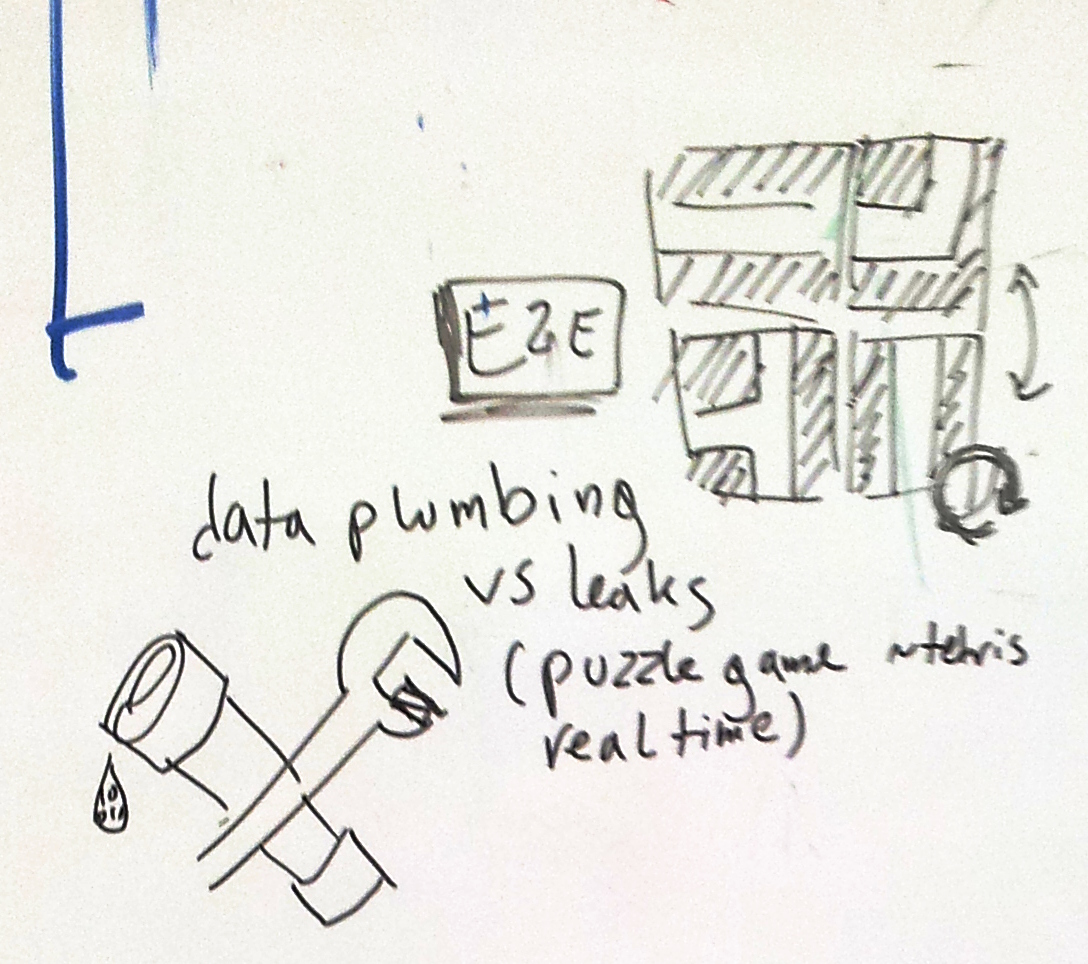 E2E
data plumbing
vs leaks
(puzzle game ~tetris
real time)